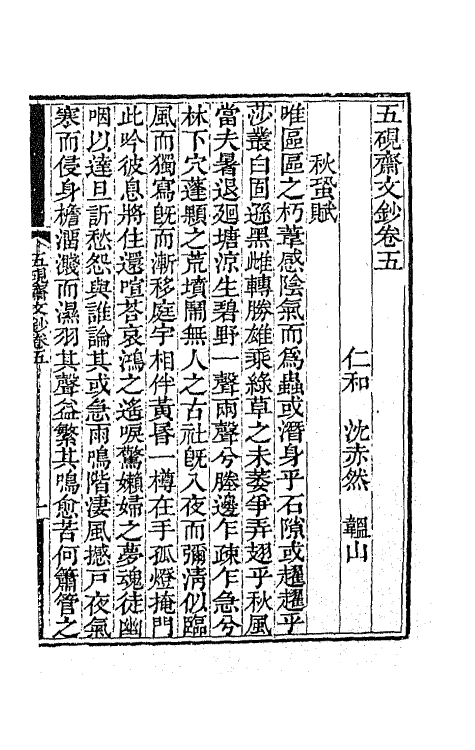 五硯齋文鈔卷五
仁和 沈赤然 韞山
秋蛩賦
唯區區之朽葦感陰氣而爲蟲或潛身乎石隙或趯趯乎
莎叢白固遜黑雌轉勝雄乘綠草之未萎爭弄翅乎秋風
當夫暑退廻塘涼生碧野一聲兩聲兮塍邊乍疎乍急兮
林下穴蓬顆之荒墳鬧無人之古社旣入夜而彌淸似臨
風而獨寫旣而漸移庭宇相伴黃昬一樽在手孤燈掩門
此吟彼息將住還喧荅哀鴻之遙唳驚嬾婦之夢魂徒幽
咽以達旦訢愁怨與誰論其或急雨鳴階淒風撼戸夜氣
寒而侵身檐溜濺而濕羽其聲益繁其鳴愈苦何簫管之
五硯齋文鈔卷五
一